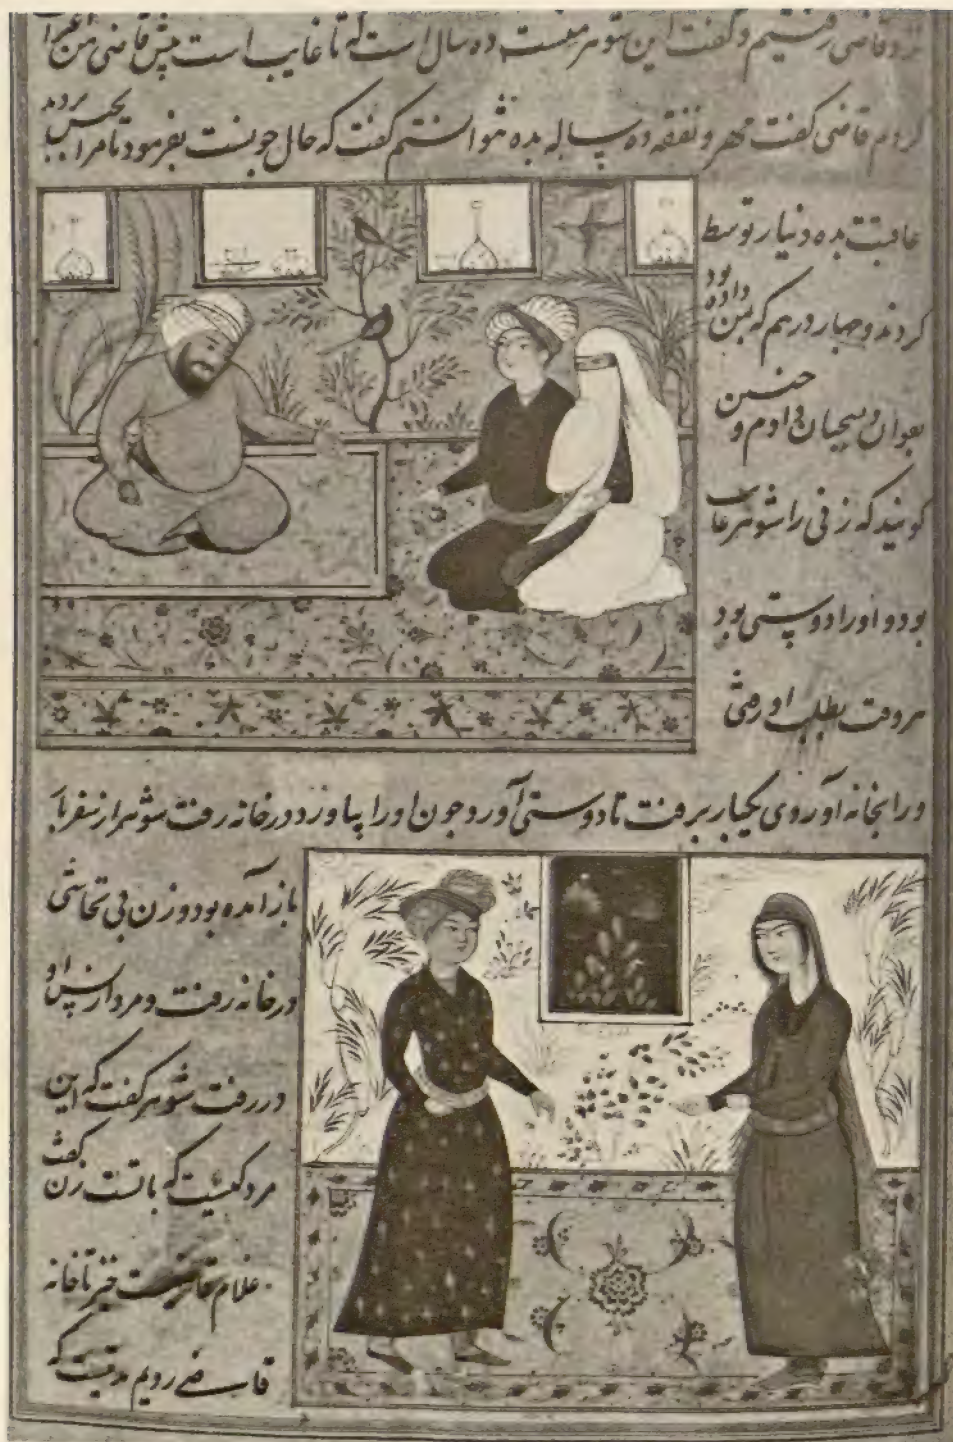 نزد قاضی رفتیم و گفت این شوهر منست ده سال است که تا غایب است پیش قاضی من
کردم قاضی گفت مهر و نفقه ده ساله بده نتوانستم گفت که حال چونست بفرمود تا مرا بحبس بردند
عاقبت بده دنیار توسط
کردند و چهار درهم که بمن داده بود
بعوان و سجیان دادم و چنین
کویند که زنی را شوهر غایب
بود و او را دوستی بود
هر وقت بطلب او رفتی
و را بخانه آوردی یکبار برفت تا دوستی آورد چون او را بیاورد در خانه رفت شوهر از سفر
باز آمده بود و زن بی تحاشی
در خانه رفت و مرد از پس او
در رفت شوهر گفت که این
مرد کیست که با تست زن گفت
غلام قاضیست خیز تا خانه
قاضی رویم مدتیست که